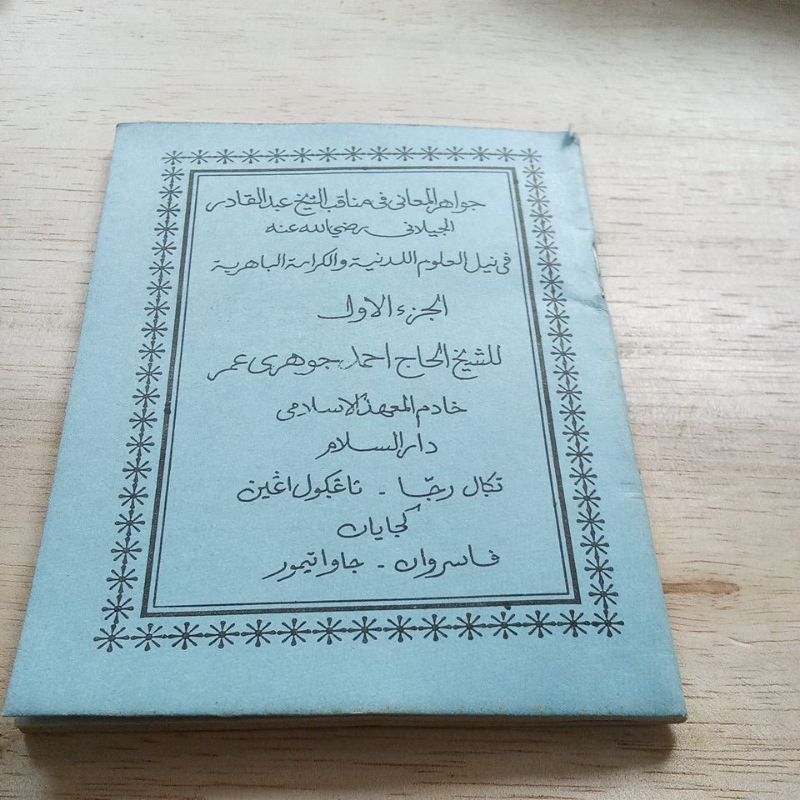 جواهر المعانى فى مناقب الشيخ عبد القادر
الجيلانى رضى الله عنه
فى نيل العلوم اللدنية والكرامة الباهرية
الجزء الاول
للشيخ الحاج احمد جوهرى عمر
خادم المعهد الاسلامى
دار السلام
تكال رجا - ناڠكول اڠين
كجايان
فاسروان - جاوا تيمور